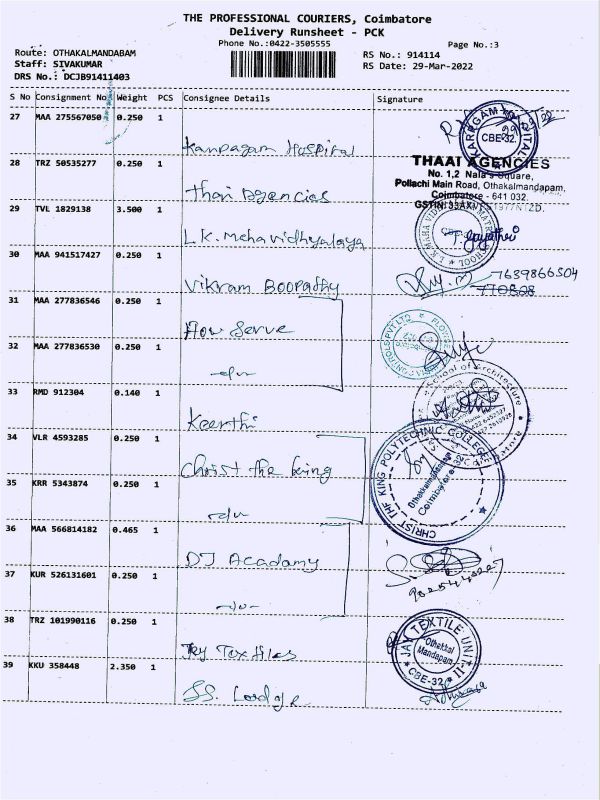 THE PROFESSIONAL COURIERS, Coimbatore
Delivery Runsheet - PCK
Phone No.:0422-3505555
Page No.:3
Route: OTHAKALMANDABAM
Staff: SIVAKUMAR
DRS No.: DCJB91411403
RS No.: 914114
RS Date: 29-Mar-2022
S No Consignment No Weight PCS Consignee Details Signature
27 MAA 275567050 0.250 1
Karpagam Hospital
CBE-32.
28 TRZ 50535277 0.250 1
Thai Agencies
THAAI AGENCIES
No. 1,2 Nala's Square,
Pollachi Main Road, Othakalmandapam,
Coimbatore - 641 032.
29 TVL 1829138 3.500 1
L.K. Mahavidhyalaya
30 MAA 941517427 0.250 1
Vikram Boopathy
7639866504
31 MAA 277836546 0.250 1
Flow Serve
32 MAA 277836530 0.250 1
33 RMD 912304 0.140 1
Keerthi
School of Architecture
34 VLR 4593285 0.250 1
Christ the king
CHRIST THE KING POLYTECHNIC COLLEGE
Othakkalmandapam
Coimbatore
35 KRR 5343874 0.250 1
36 MAA 566814182 0.465 1
DJ Acadamy
37 KUR 526131601 0.250 1
38 TRZ 101990116 0.250 1
Jay Textiles
JAY TEXTILE UNIT-II
Othakkal
Mandapam
CBE-32
39 KKU 358448 2.350 1
SS. Lordge